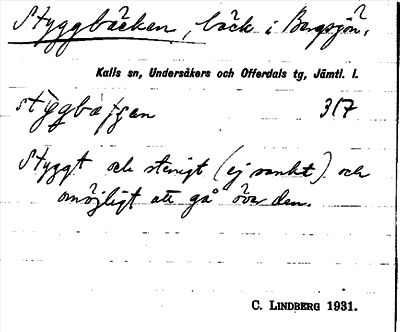 Styggbäcken, bäck i Bergsjön?.
Kalls sn, Undersåkers och Offerdals tg, Jämtl. l.
317
Styggt och stenigt (ej sankt) och
omöjligt att gå över den.
C. LINDBERG 1931.